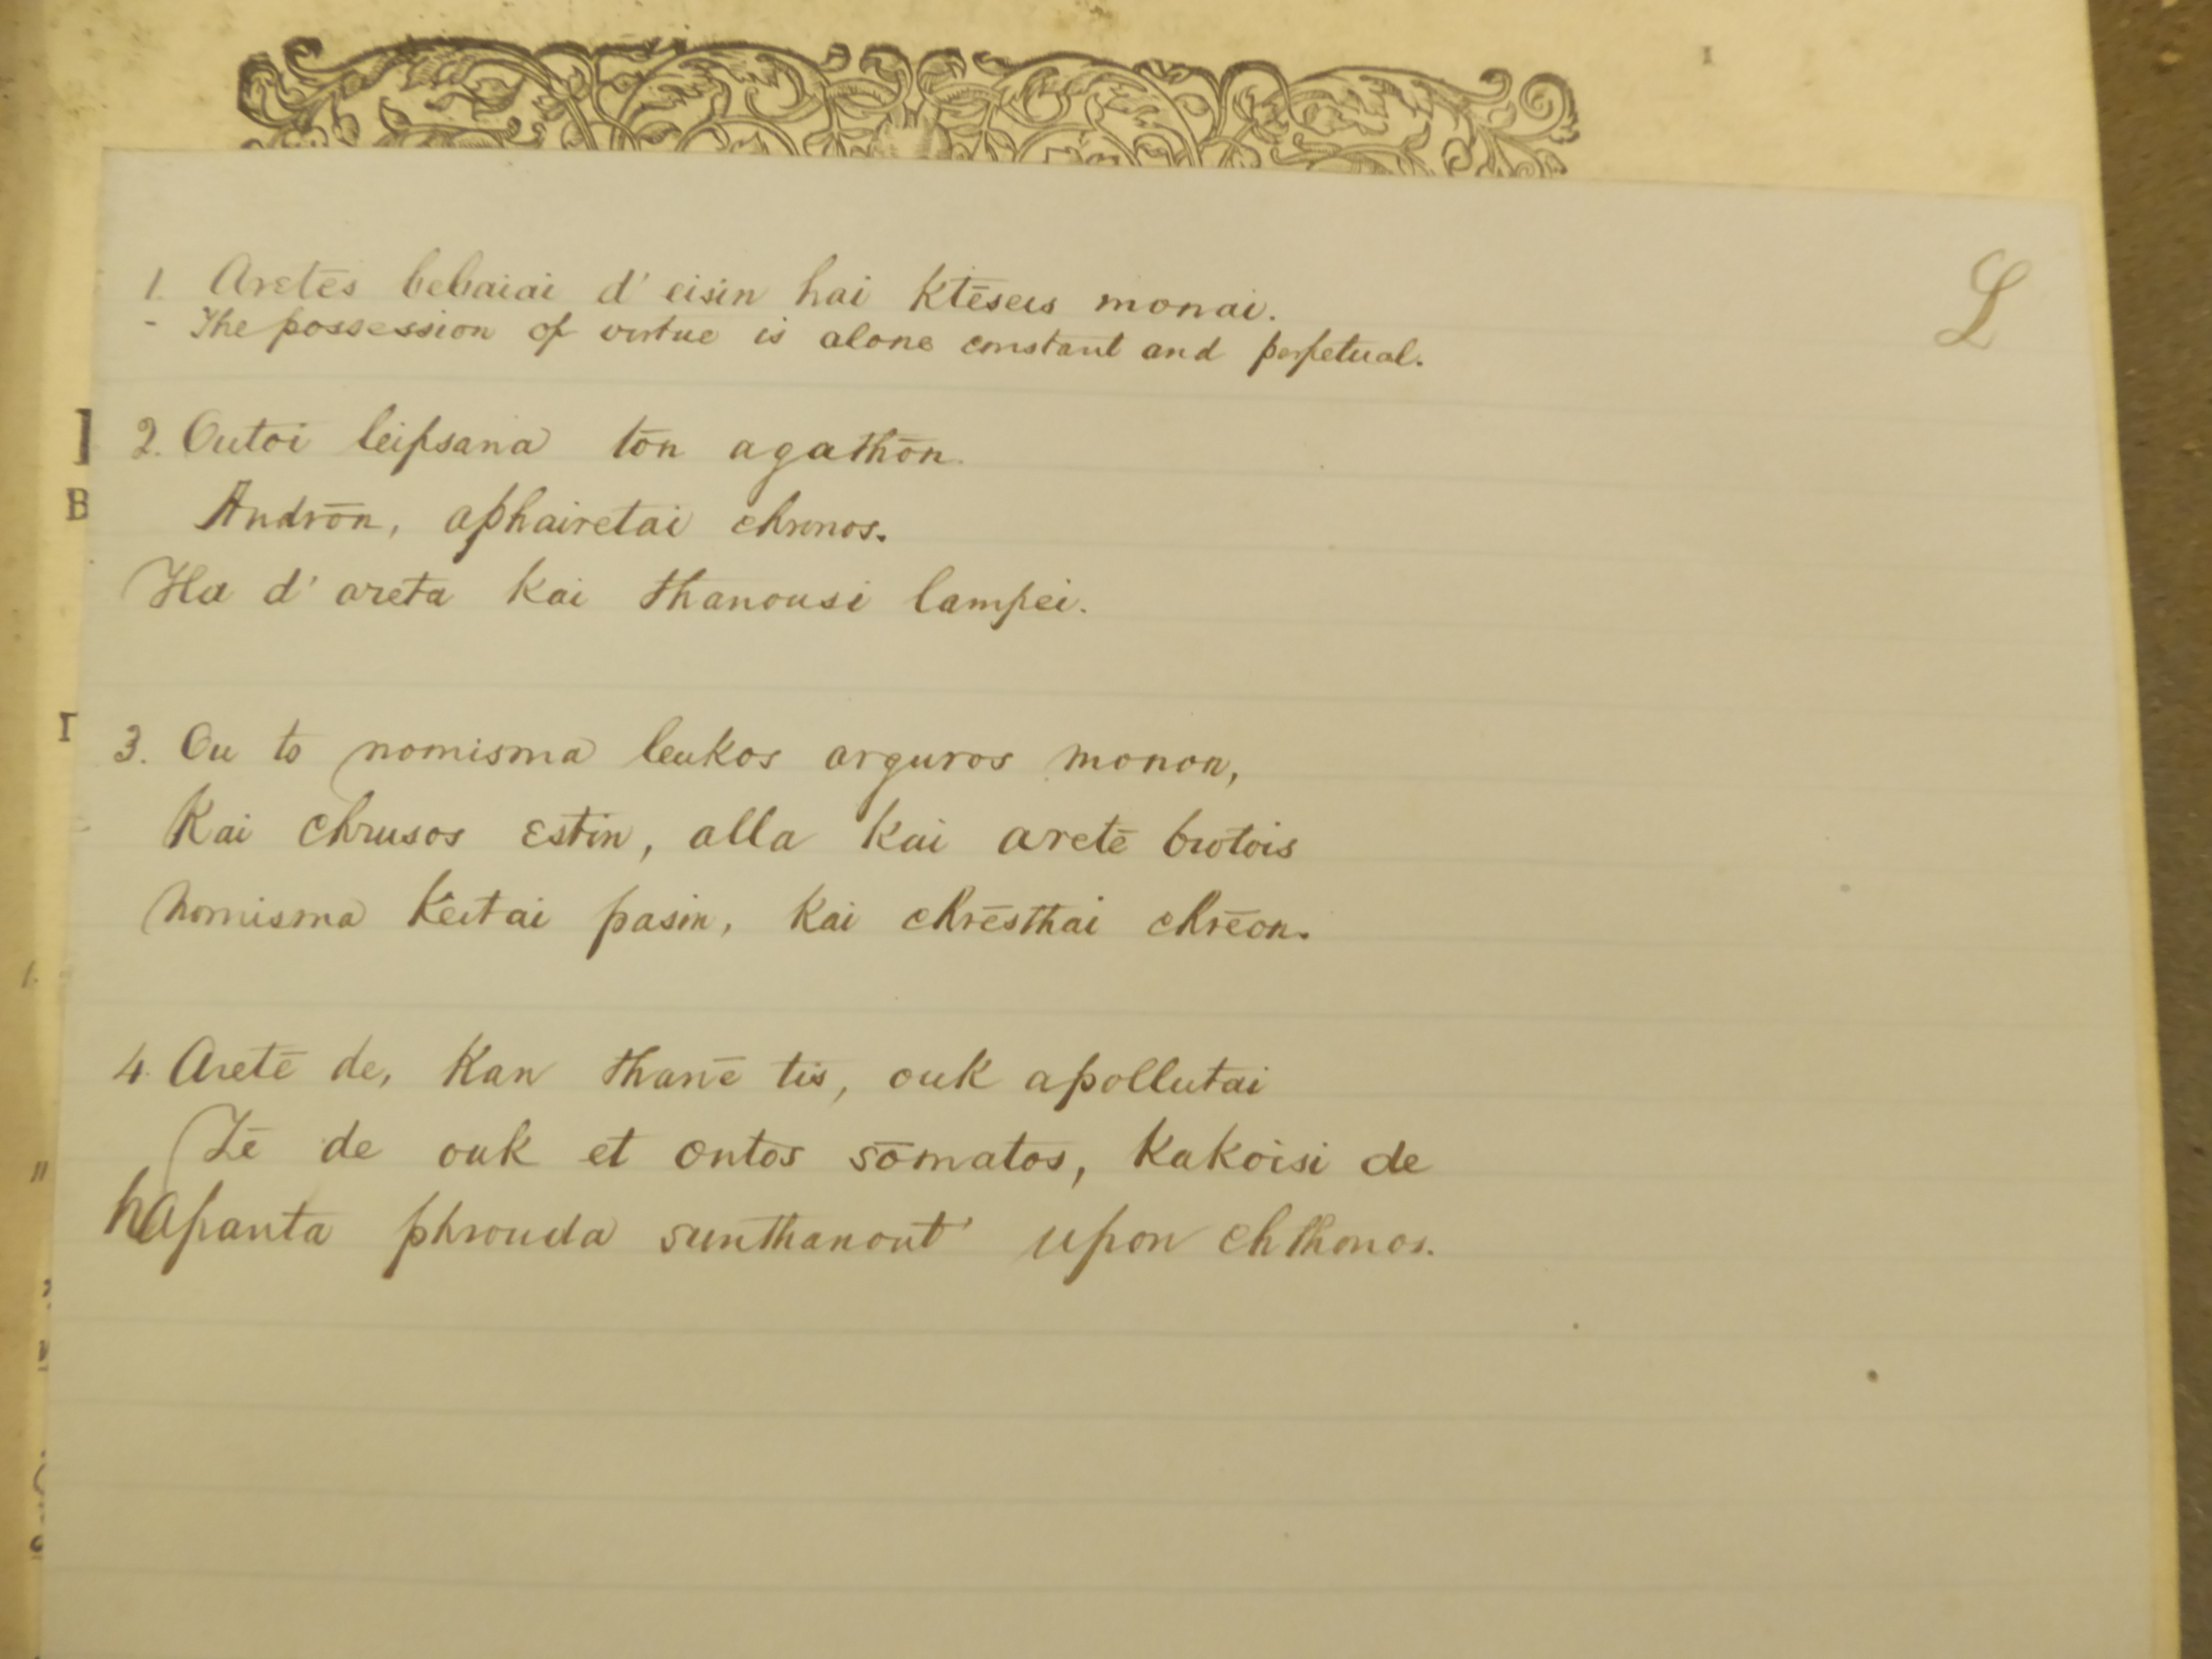 L
1. Aretēs bebaiai d' eisin hai Ktēseis monai.
- The possession of virtue is alone constant and perpetual.
2. Outoi leipsana tōn agathōn.
Andrōn, aphairetai chronos.
Ha d' areta Kai thanousi lampei.
3. Ou to nomisma leukos arguros monon,
Kai chrusos estin, alla Kai aretē brotois
nomisma Keitai pasin, Kai chrēsthai chrēon.
4. Aretē de, Kan thanē tis, ouk apollutai
Zē de ouk et ontos sōmatos, Kakoisi de
hapanta phrouda sunthanont' upon chthonos.